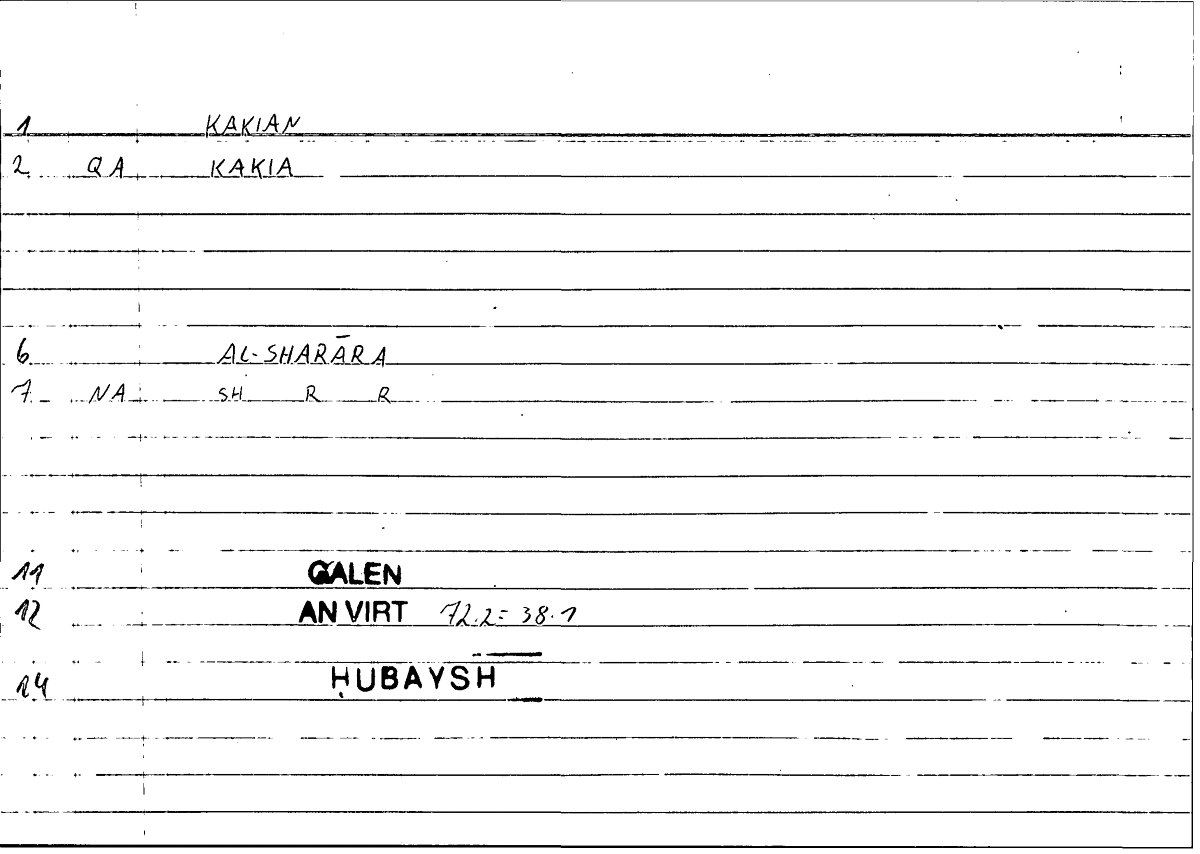 1 KAKIAN
2 QA KAKIA
6 AL-SHARĀRA
7 NA SH R R
11 GALEN
12 AN VIRT 72.2= 38.1
14 ḤUBAYSH